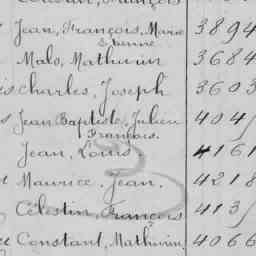 Jean, François, Marie 3894
Etienne
Malo, Mathurin 3684
Charles, Joseph 3603
Jean Baptiste, Julien 404
François.
Jean, Louis 4161
Maurice, Jean. 4218
Célestin, François 413
Constant, Mathurin, 4066